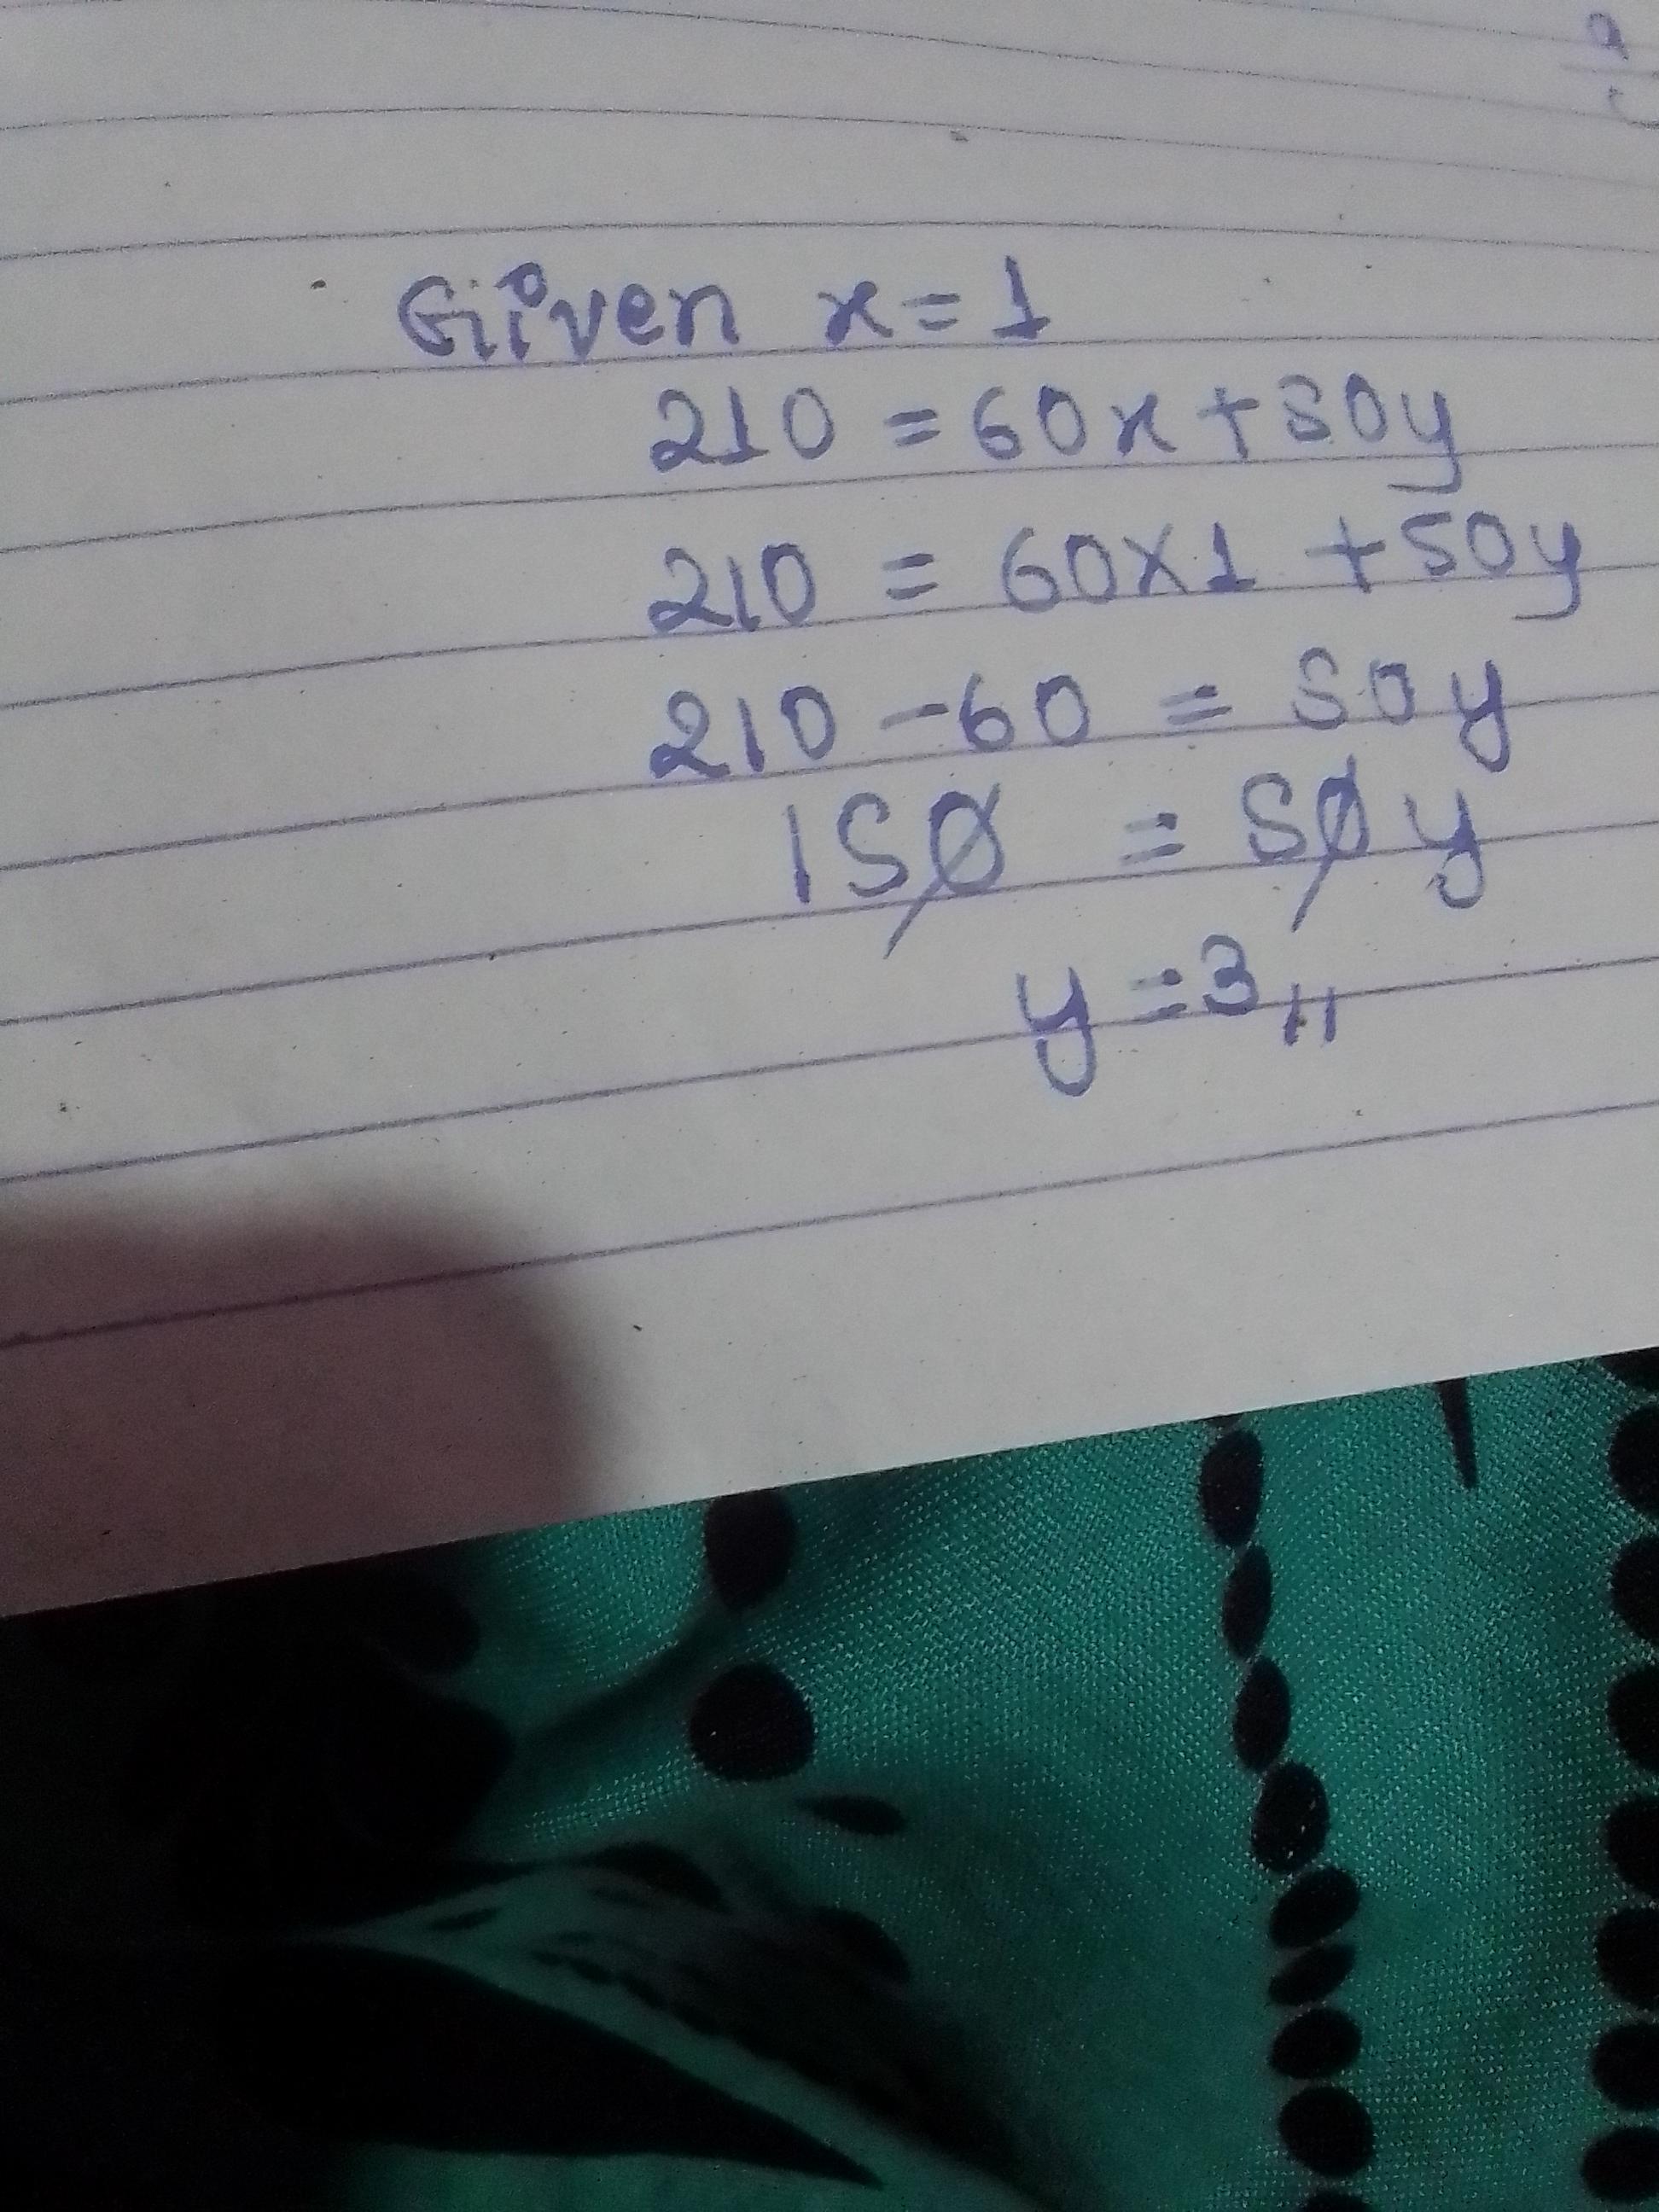 Given x = 1
210 = 60x + 50y
210 = 60×1 + 50y
210 - 60 = 50y
150 = 50y
y = 3 11